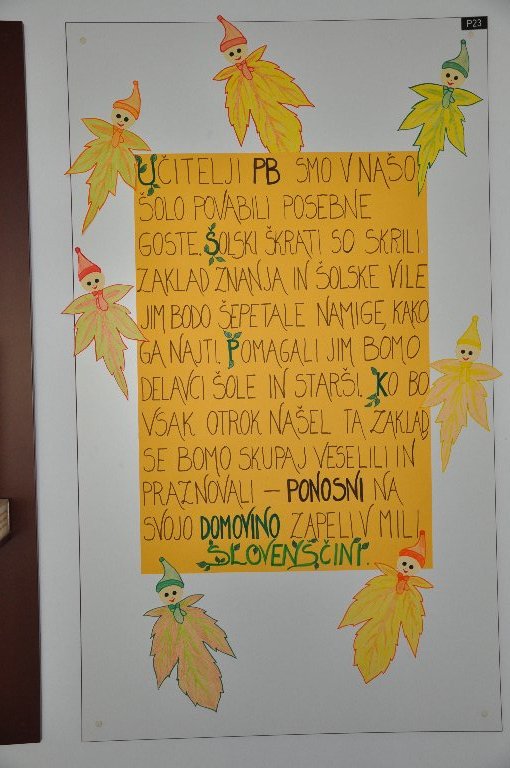 P23
UČITELJI PB SMO V NAŠO
ŠOLO POVABILI POSEBNE
GOSTE. ŠOLSKI ŠKRATI SO SKRILI
ZAKLAD ZNANJA IN ŠOLSKE VILE
JIM BODO ŠEPETALE NAMIGE, KAKO
GA NAJTI. POMAGALI JIM BOMO
DELAVCI ŠOLE IN STARŠI. KO BO
VSAK OTROK NAŠEL TA ZAKLAD,
SE BOMO SKUPAJ VESELILI IN
PRAZNOVALI – PONOSNI NA
SVOJO DOMOVINO ZAPELI V MILI
SLOVENŠČINI.